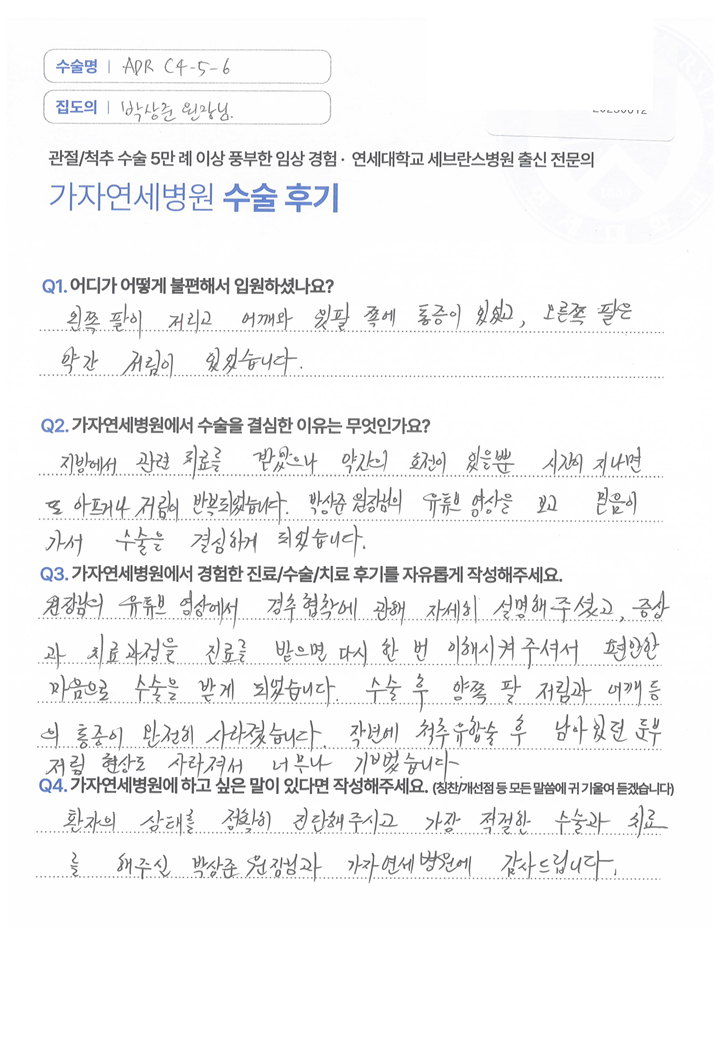 수술명 | ADR C4-5-6
집도의 | 박상준 원장님.
관절/척추 수술 5만 례 이상 풍부한 임상 경험 · 연세대학교 세브란스병원 출신 전문의
가자연세병원 수술 후기
Q1. 어디가 어떻게 불편해서 입원하셨나요?
왼쪽 팔이 저리고 어깨와 윗팔 쪽에 통증이 있었고, 오른쪽 팔은
약간 저림이 있었습니다.
Q2. 가자연세병원에서 수술을 결심한 이유는 무엇인가요?
지방에서 관련 치료를 받았으나 약간의 호전이 있을뿐 시간이 지나면
또 아프거나 저림이 반복되었습니다. 박상준 원장님의 유튜브 영상을 보고 믿음이
가서 수술을 결심하게 되었습니다.
Q3. 가자연세병원에서 경험한 진료/수술/치료 후기를 자유롭게 작성해주세요.
원장님의 유튜브 영상에서 경추협착에 관해 자세히 설명해주셨고, 증상
과 치료과정을 진료를 받으면 다시 한 번 이해시켜 주셔서 편안한
마음으로 수술을 받게 되었습니다. 수술 후 양쪽 팔 저림과 어깨 등
의 통증이 완전히 사라졌습니다. 작년에 척추유합술 후 남아있던 둔부
저림 현상도 사라져서 너무나 기뻤습니다.
Q4. 가자연세병원에 하고 싶은 말이 있다면 작성해주세요. (칭찬/개선점 등 모든 말씀에 귀 기울여 듣겠습니다)
환자의 상태를 정확히 진단해주시고 가장 적절한 수술과 치료
를 해주신 박상준 원장님과 가자연세병원에 감사드립니다.